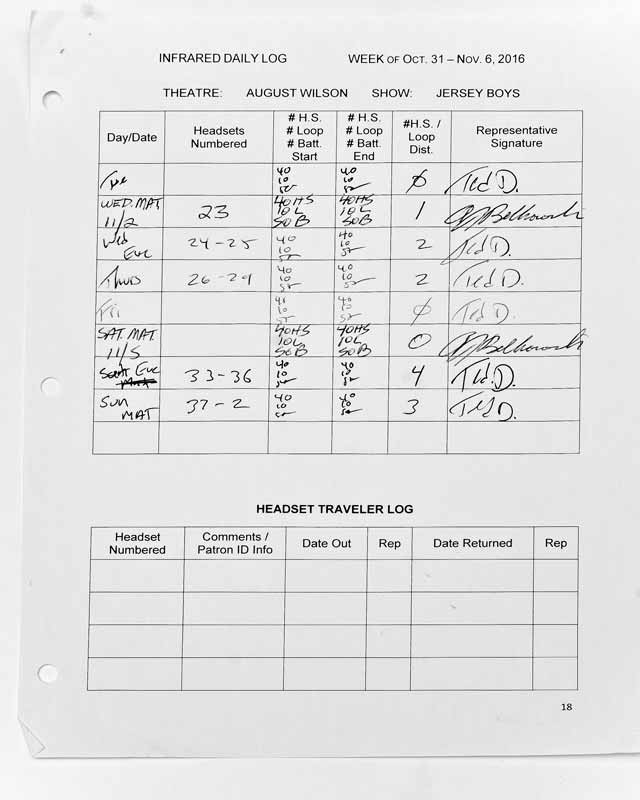 INFRARED DAILY LOG WEEK OF OCT. 31 – NOV. 6, 2016
THEATRE: AUGUST WILSON SHOW: JERSEY BOYS
Day/Date
Headsets Numbered
# H.S. # Loop # Batt. Start
# H.S. # Loop # Batt. End
#H.S. / Loop Dist.
Representative Signature
Tue 40 10 50 40 10 50 Ø Ted D.
WED. MAT 11/2 23 40HS 10L 50B 40HS 10L 50B 1
Wed Eve 24-25 40 10 50 40 10 50 2 Ted D.
Thurs 26-29 40 10 50 40 10 50 2 Ted D.
Fri 40 10 50 40 10 50 Ø Ted D.
SAT. MAT. 11/5 40HS 10L 50B 40HS 10L 50B 0
Sat Eve 33-36 40 10 50 40 10 50 4 Ted D.
Sun MAT 37-2 40 10 50 40 10 50 3 Ted D.
HEADSET TRAVELER LOG
Headset Numbered
Comments / Patron ID Info
Date Out
Rep
Date Returned
Rep
18